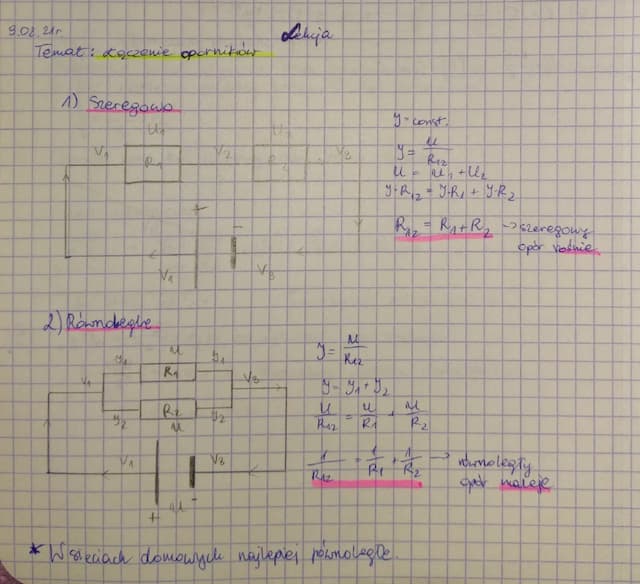 9.02.21r. Lekcja
Temat: Łączenie oporników
1) Szeregowo
U1 U2
V1 R1 V2 R2 V3
+ -
V1 V3
J = const.
J = U/R12
U = U1 + U2
J·R12 = J·R1 + J·R2
R12 = R1 + R2 → szeregowy
opór rośnie
2) Równoległe
J1 U J1
R1
V1 V3
R2
J2 U J2
V1 V3
+ U -
J = U/R12
J = J1 + J2
U/R12 = U/R1 + U/R2
1/R12 = 1/R1 + 1/R2 → równoległy
opór maleje
* W sieciach domowych najlepiej równoległe.